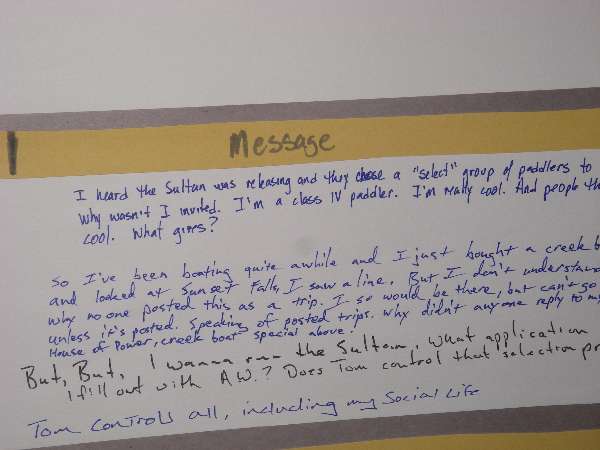 Message
I heard the Sultan was releasing and they chose a "select" group of paddlers to
why wasn't I invited. I'm a class IV paddler. I'm really cool. And people
cool. What gives?
So I've been boating quite awhile and I just bought a creek
and looked at Sunset Falls, I saw a line. But I don't understand
why no one posted this as a trip. I so would be there, but can't go
unless it's posted. Speaking of posted trips. Why didn't anyone reply to my
House of Power, creek boat special above.
But, But, I wanna run the Sultan, what application
I fill out with A.W.? Does Tom control that selection
Tom controls all, including my Social Life